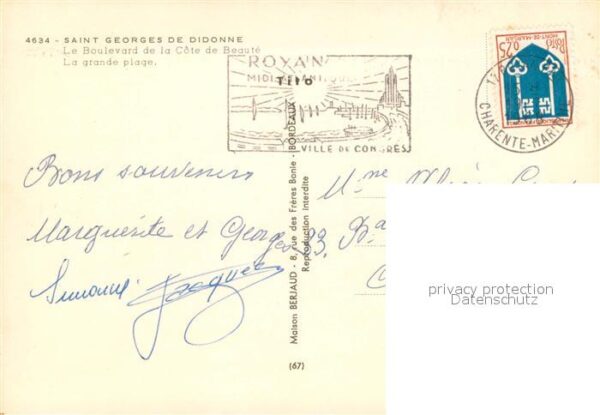 4634 - SAINT GEORGES DE DIDONNE
Le Boulevard de la Côte de Beauté
La grande plage.
ROYAN
Tito
VILLE DE CONGRÈS
Postes
MONT-DE-MARSAN
0,25
CHARENTE-MARITI
Bons souvenirs
Marguerite et Georges
Simone Jacques
Maison BERJAUD - 8, rue des Frères Bonie - BORDEAUX
Reproduction interdite
(67)
Mme
23, Ba
privacy protection
Datenschutz